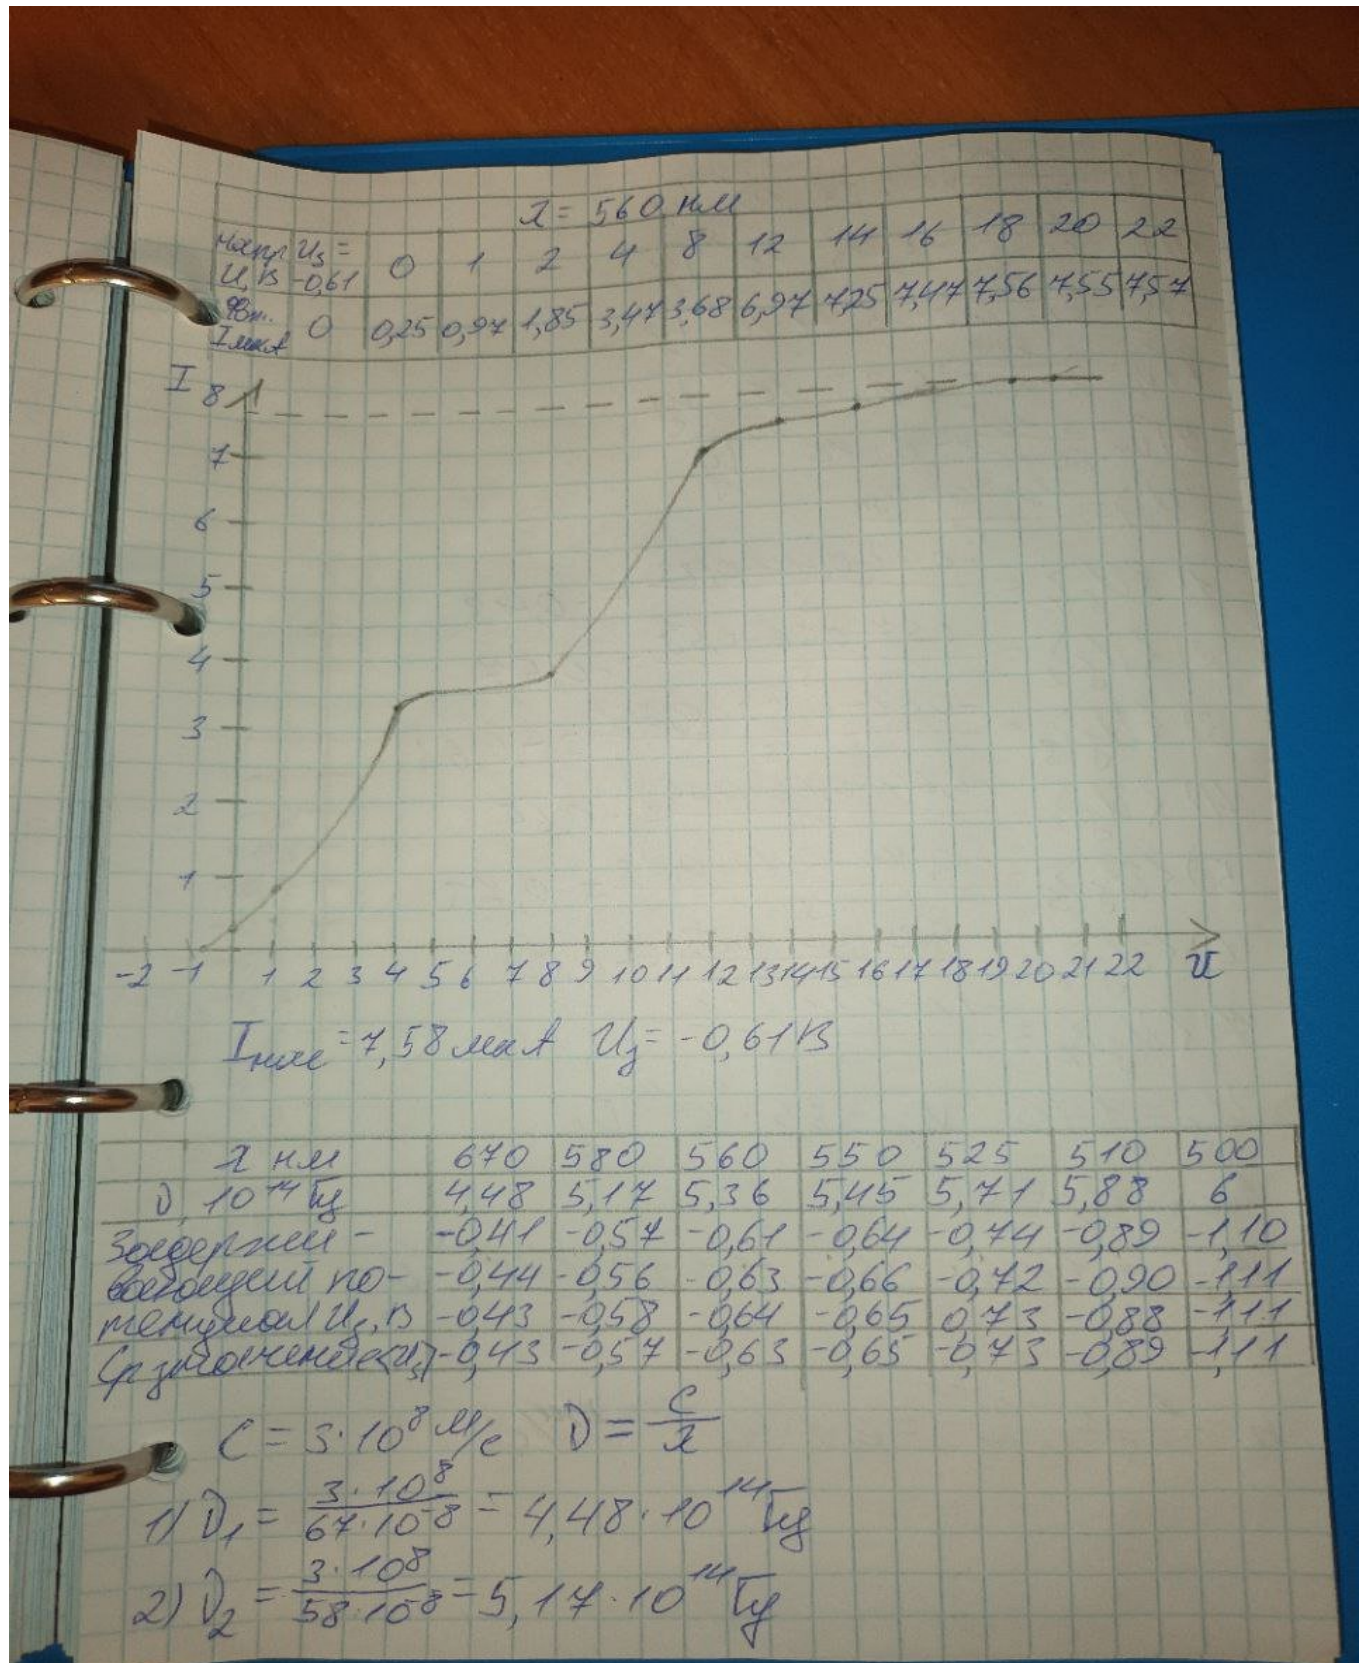 λ = 560 нм
напр U, В | Uз = -0,61 | 0 | 1 | 2 | 4 | 8 | 12 | 14 | 16 | 18 | 20 | 22
Фот. I мкА | 0 | 0,25 | 0,97 | 1,85 | 3,47 | 3,68 | 6,97 | 7,25 | 7,47 | 7,56 | 7,55 | 7,57
I
8
7
6
5
4
3
2
1
-2 -1 1 2 3 4 5 6 7 8 9 10 11 12 13 14 15 16 17 18 19 20 21 22 U
Iнас = 7,58 мкА Uз = -0,61 В
λ нм | 670 | 580 | 560 | 550 | 525 | 510 | 500
ν, 10¹⁴ Гц | 4,48 | 5,17 | 5,36 | 5,45 | 5,71 | 5,88 | 6
Задержи- | -0,41 | -0,57 | -0,61 | -0,64 | -0,74 | -0,89 | -1,10
вающий по- | -0,44 | -0,56 | -0,63 | -0,66 | -0,72 | -0,90 | -1,11
тенциал Uз, В | -0,43 | -0,58 | -0,64 | -0,65 | 0,73 | -0,88 | -1,11
Ср значение <Uз> | -0,43 | -0,57 | -0,63 | -0,65 | -0,73 | -0,89 | -1,11
C = 3·10⁸ м/с ν = c/λ
1) ν₁ = 3·10⁸/67·10⁻⁸ = 4,48·10¹⁴ Гц
2) ν₂ = 3·10⁸/58·10⁻⁸ = 5,17·10¹⁴ Гц